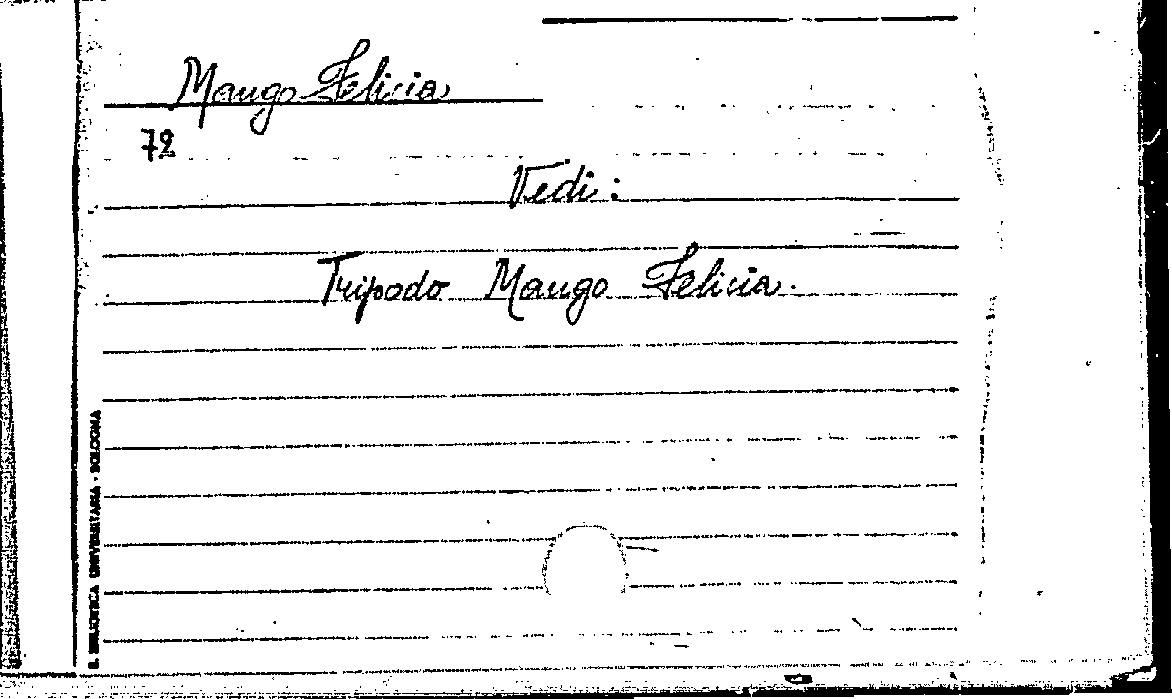 Mango Felicia
72
Vedi:
Tripodo Mango Felicia.
B. BIBLIOTECA UNIVERSITARIA - BOLOGNA